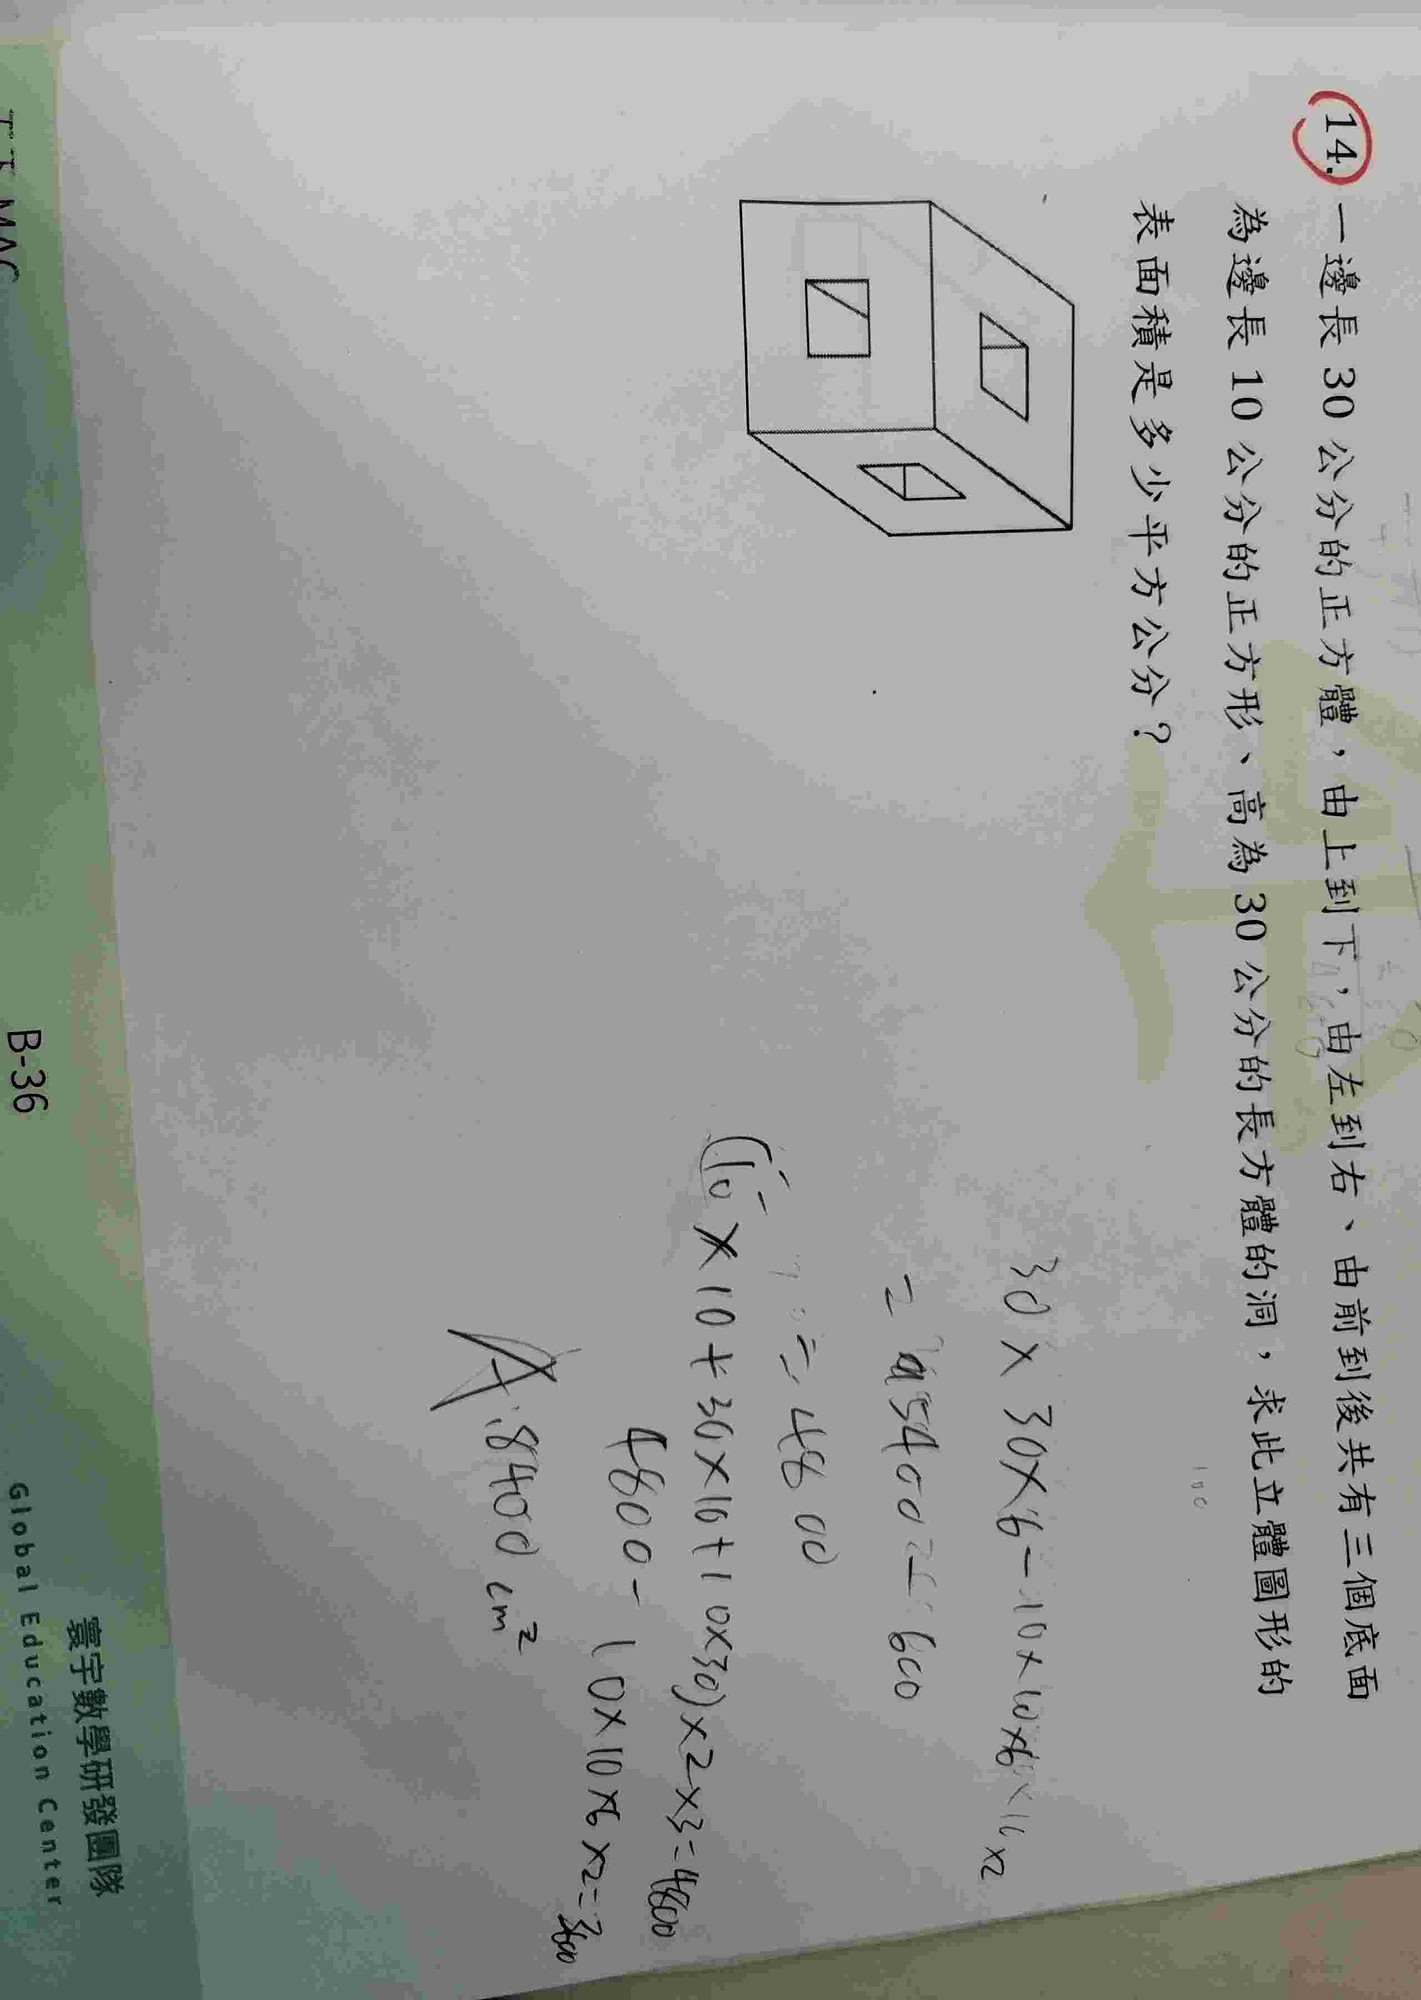 14. 一邊長 30 公分的正方體，由上到下，由左到右、由前到後共有三個底面
為邊長 10 公分的正方形、高為 30 公分的長方體的洞，求此立體圖形的
表面積是多少平方公分？
100
30 × 30×6 - 10×10×6
= 5400 - 600
= 4800
(10 × 10 + 30×10 + 10×30)×2×3=4800
4800 - 10×10×6×2=3600
A: 8400 cm²
寰宇數學研發團隊
B-36
Global Education Center